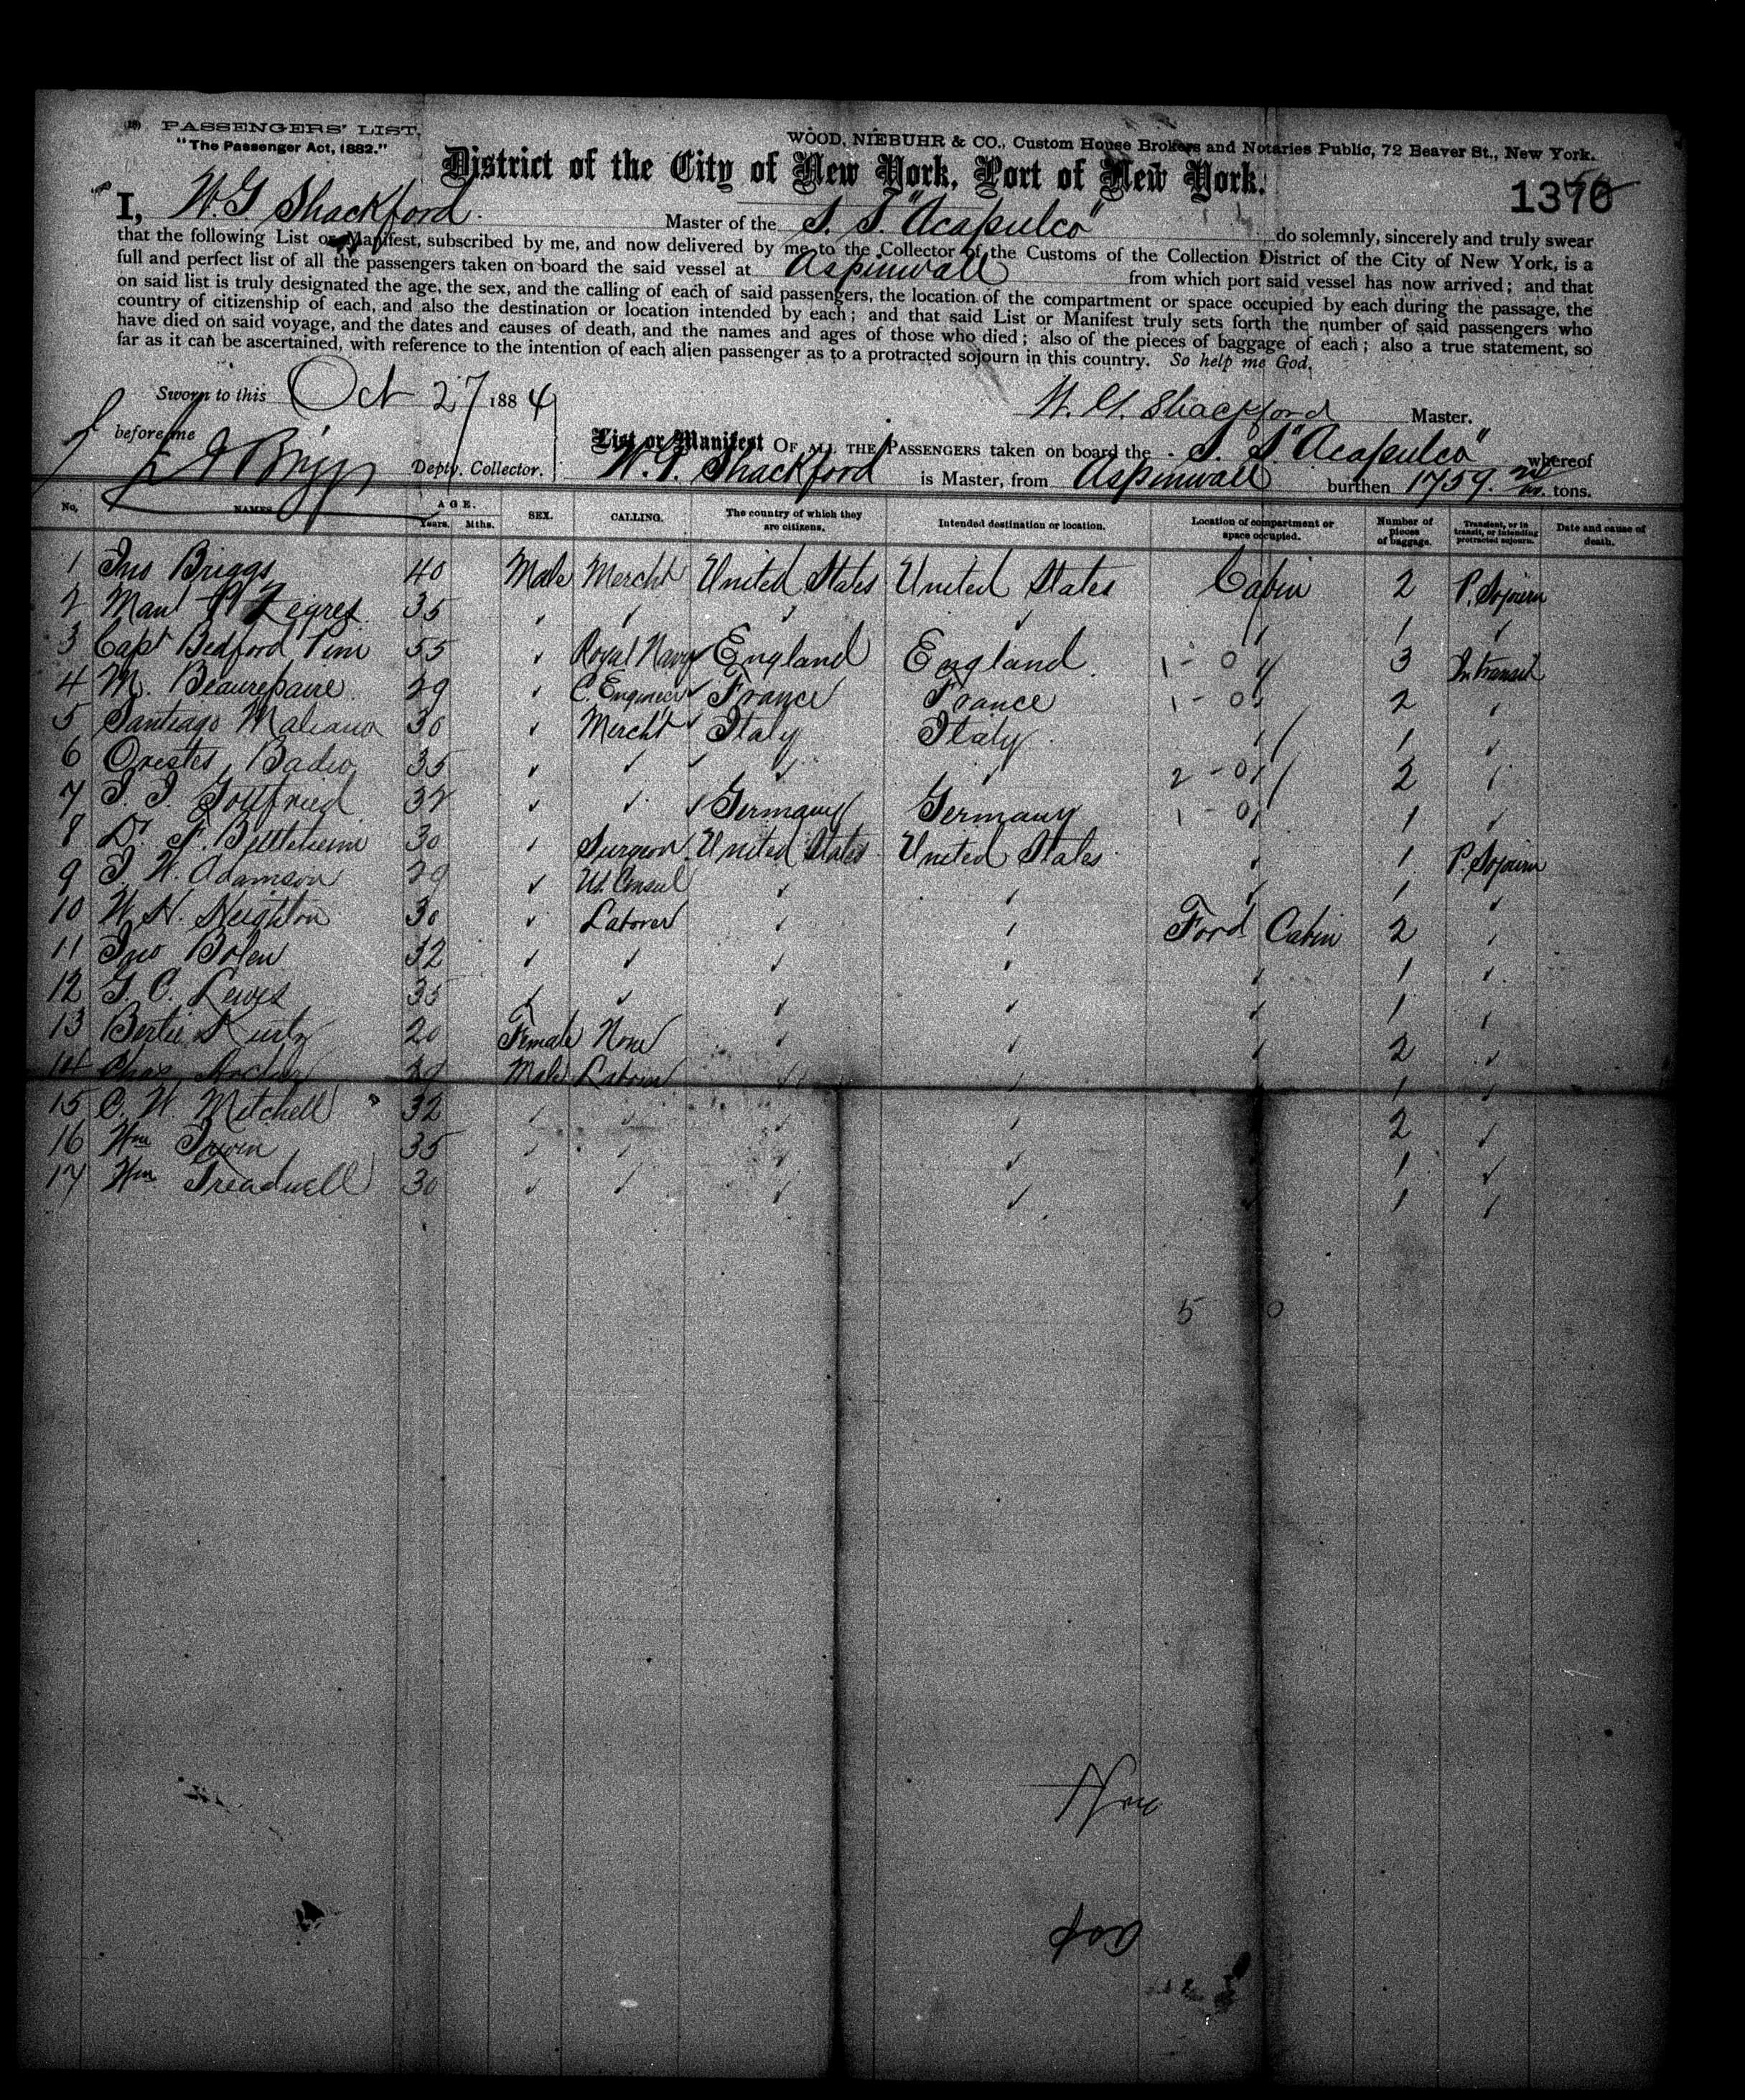 (18) PASSENGERS' LIST.
"The Passenger Act, 1882."
WOOD, NIEBUHR & CO., Custom House Brokers and Notaries Public, 72 Beaver St., New York.
District of the City of New York, Port of New York.
1370
I, W. G. Shackford Master of the S. S. "Acapulco" do solemnly, sincerely and truly swear
that the following List or Manifest, subscribed by me, and now delivered by me to the Collector of the Customs of the Collection District of the City of New York, is a
full and perfect list of all the passengers taken on board the said vessel at Aspinwall from which port said vessel has now arrived; and that
on said list is truly designated the age, the sex, and the calling of each of said passengers, the location of the compartment or space occupied by each during the passage, the
country of citizenship of each, and also the destination or location intended by each; and that said List or Manifest truly sets forth the number of said passengers who
have died on said voyage, and the dates and causes of death, and the names and ages of those who died; also of the pieces of baggage of each; also a true statement, so
far as it can be ascertained, with reference to the intention of each alien passenger as to a protracted sojourn in this country. So help me God.
Sworn to this Oct 27 1884
W. G. Shackford Master.
before me
Briggs Depty. Collector.
List or Manifest OF ALL THE PASSENGERS taken on board the S. S. "Acapulco" whereof
W. G. Shackford is Master, from Aspinwall burthen 1759. tons.
No. NAMES AGE. Years. Mths. SEX. CALLING. The country of which they are citizens. Intended destination or location. Location of compartment or space occupied. Number of pieces of baggage. Transient, or in transit, or intending protracted sojourn. Date and cause of death.
1 Jno Briggs 40 Male Mercht United States United States Cabin 2 P. Sojourn
2 Manl P 35 1
3 Capt Bedford Pim 55 Royal Navy England England 1 - 0 3 In transit
4 M. Beaurepaire 29 C. Engineer France France 1 - 0 2
5 Santiago Maliano 30 Mercht Italy Italy 1
6 Orestes Badio 35 2 - 0 2
7 Gottfried 32 Germany Germany 1 - 0 1
8 Dr. F. Bettleheim 30 Surgeon United States United States 1 P. Sojourn
9 T. W. Adamson 29 U.S. Consul 1
10 W. H. Heighton 30 Laborer Ford Cabin 2
11 Jno Bolen 32 1
12 G. C. Lewis 35 1
13 Bertie Kurtz 20 Female None 2
14 Chas Archer Male Laborer 1
15 C. W. Mitchell 32 2
16 Wm Irwin 35 1
17 Wm Treadwell 30 1
5 0